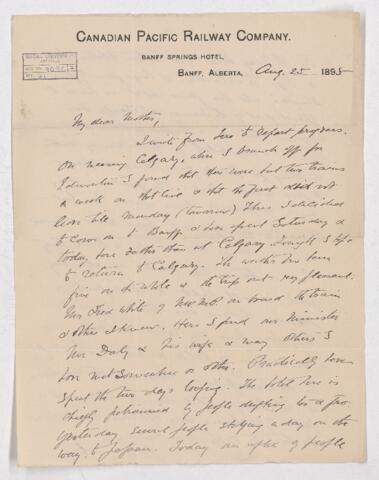 CANADIAN PACIFIC RAILWAY COMPANY.
BANFF SPRINGS HOTEL,
BANFF, ALBERTA, Aug. 25 1895
My dear Mother,
I write from here to report progress.
On nearing Calgary where I branch off for
Edmonton I found that there were but two trains
a week on that line & that the first did not
leave till Monday (tomorrow) Thus I decided
to come on to Banff & have spent Saturday &
today here rather than at Calgary Tonight I
to return to Calgary. The weather has been
fine on the whole & the trip out very pleasant.
Mr Fred White of NWMP on board the train
& others I knew. Here I find our Minister
Mr Daly & his wife & many others I
have met somewhere or other. Practically have
spent the two days loafing. The hotel here is
chiefly patronized by people drifting to & fro
Yesterday several people stopping a day on the
way to Japan. Today an influx of people